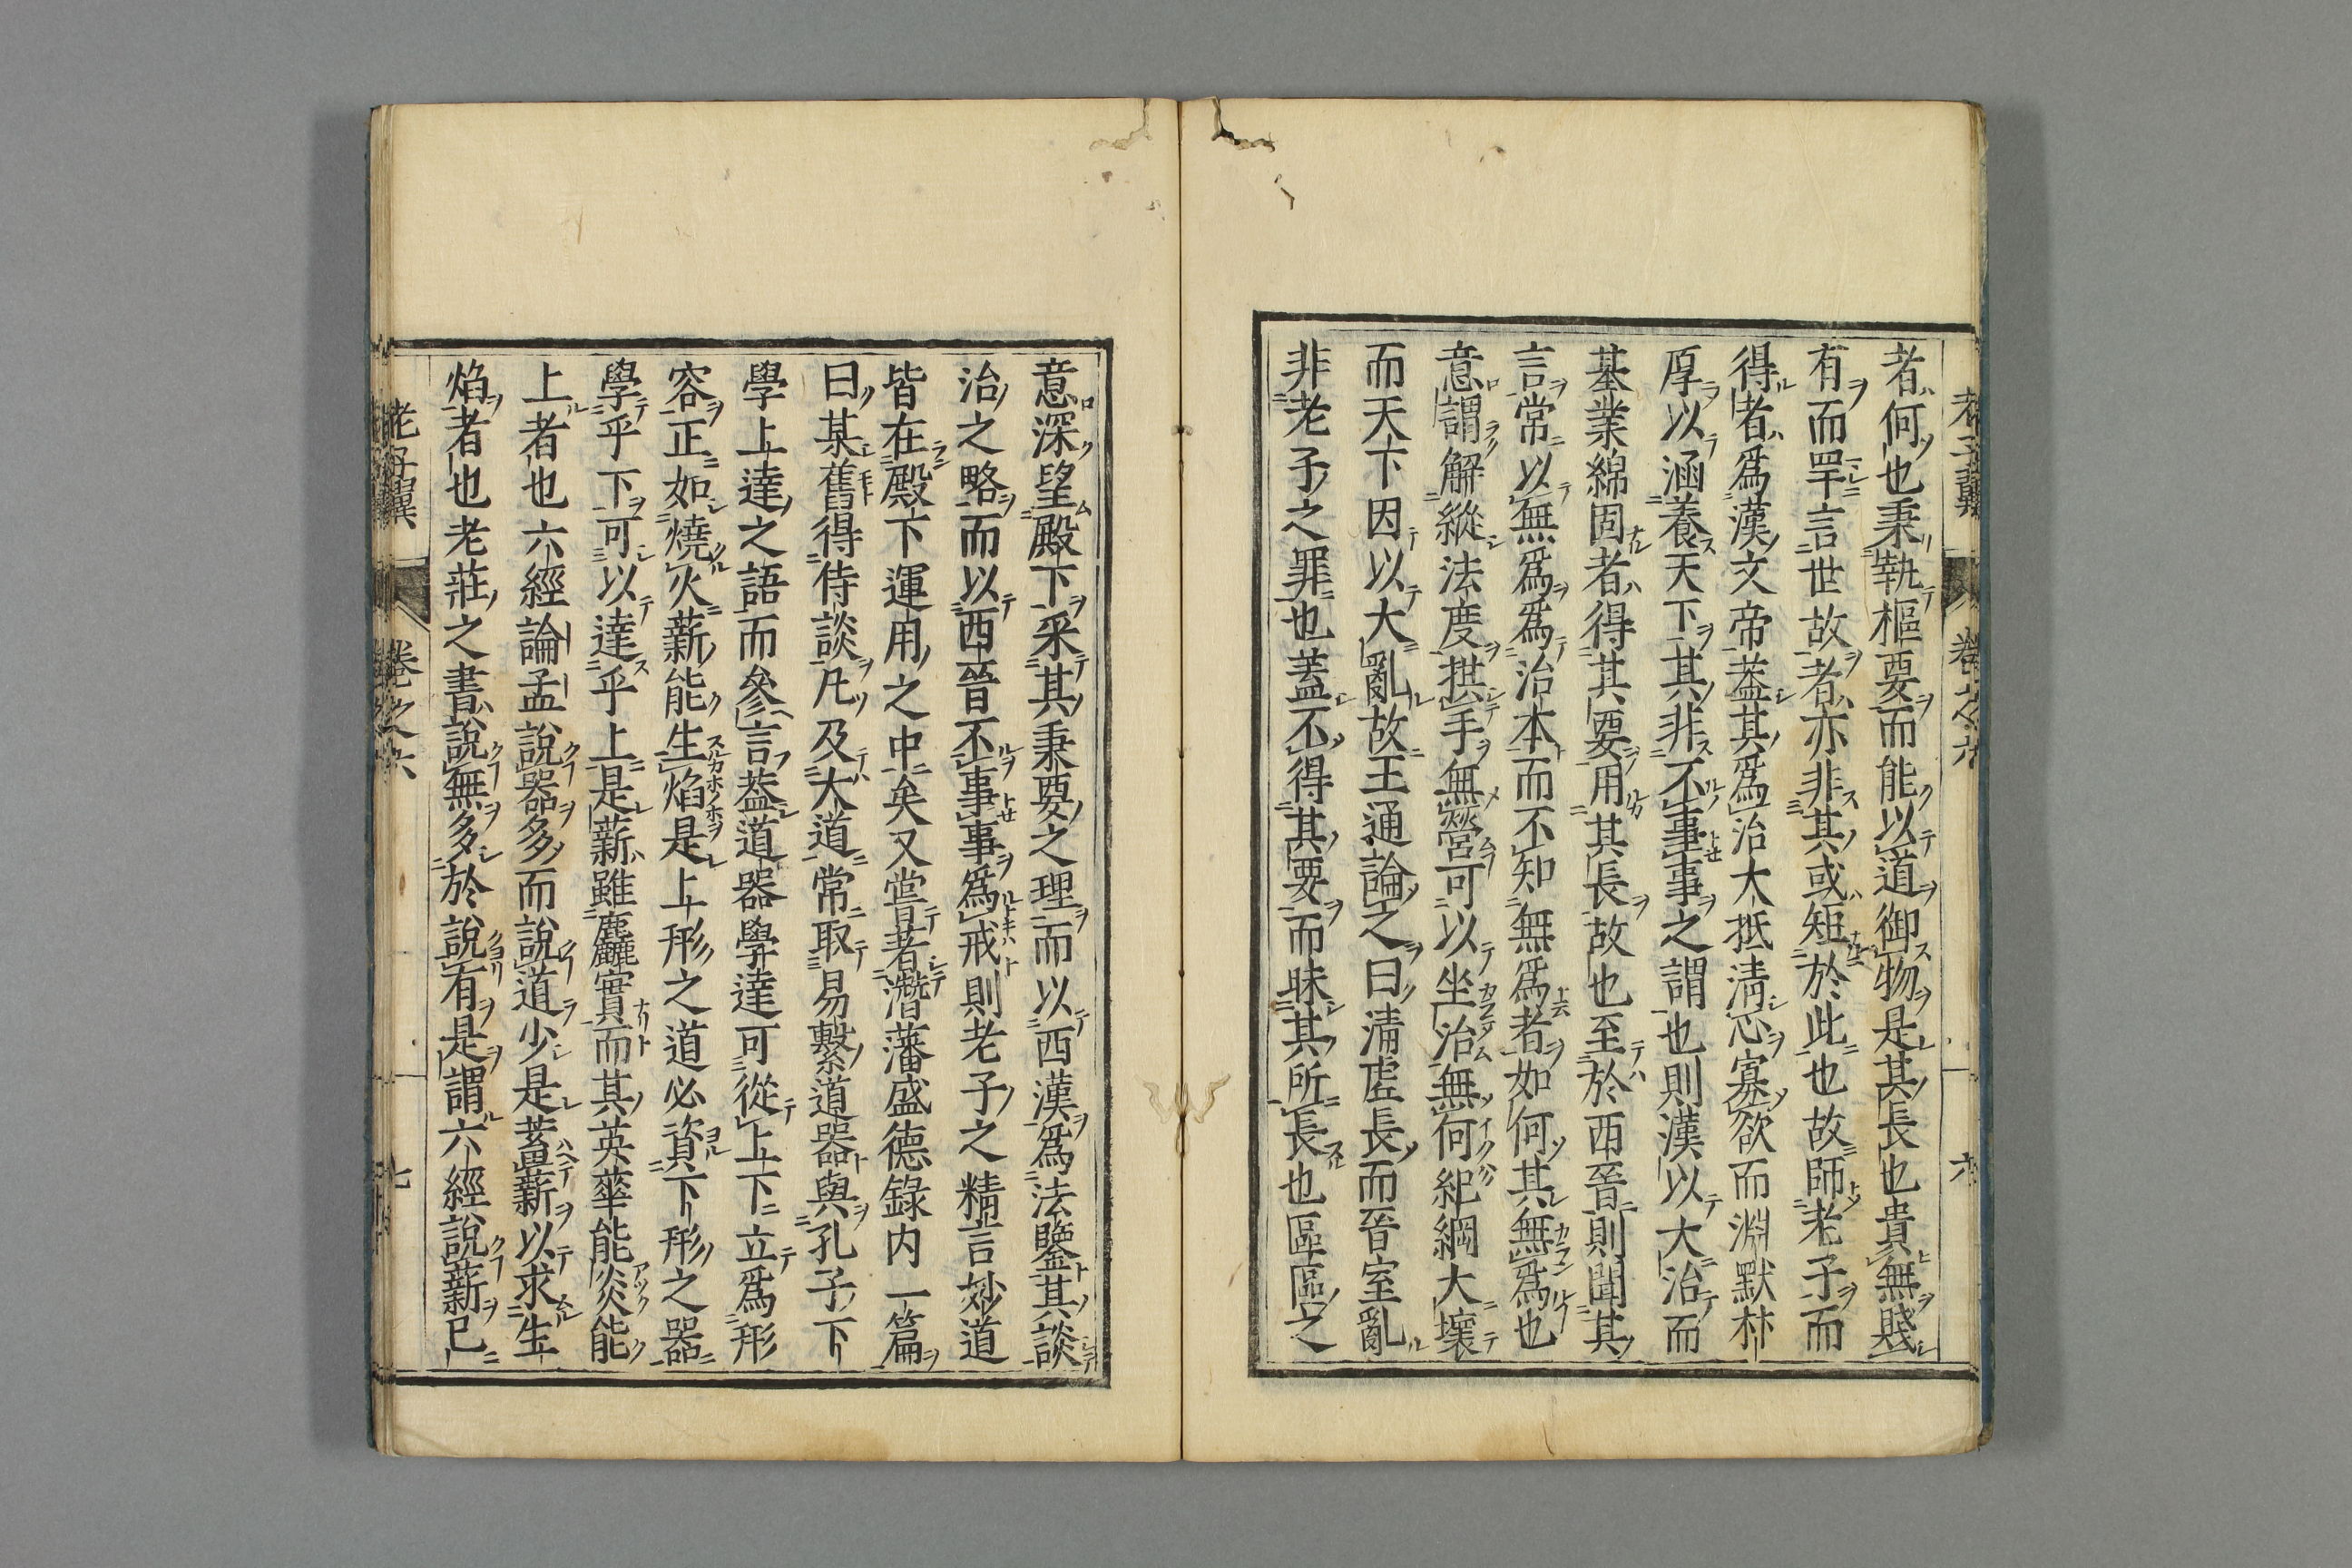 老子翼 卷之六 六
者何也秉執樞要而能以道御物是其長也貴無賤
有而罕言世故者亦非其或矩於此也故師老子而
得者爲漢文帝葢其爲治大抵清心寡欲而淵默朴
厚以涵養天下其非不事事之謂也則漢以大治而
基業綿固者得其要用其長故也至於西晉則聞其
言常以無爲爲治本而不知無爲者如何其無爲也
意謂解縱法度拱手無營可以坐治無何紀綱大壞
而天下因以大亂故王通論之曰清虛長而晉室亂
非老子之罪也蓋不得其要而昧其所長也區區之
意深望殿下采其秉要之理而以西漢爲法鑒其談
治之略而以西晉不事事爲戒則老子之精言妙道
皆在殿下運用之中矣又嘗著潛藩盛德錄内一篇
曰某舊得侍談凡及大道常取易繫道器與孔子下
學上達之語而參言葢道器學達可從上下立爲形
容正如燒火薪能生焰是上形之道必資下形之器
學乎下可以達乎上是薪雖麤實而其英華能炎能
上者也六經論孟說器多而說道少是蓄薪以求生
焰者也老莊之書說無多於說有是謂六經說薪已
老子翼 卷之六 七